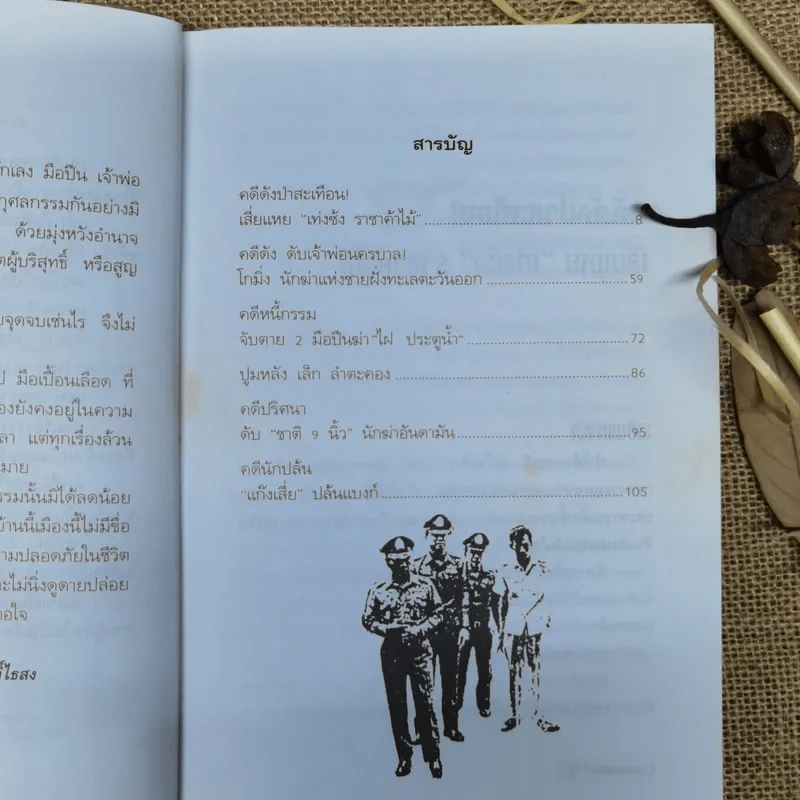 กเลง มือปืน เจ้าพ่อ
กุศลกรรมกันอย่างมิ
ด้วยมุ่งหวังอำนาจ
ผู้บริสุทธิ์ หรือสูญ
จุดจบเช่นไร จึงไม่
มือเปื้อนเลือด ที่
องยังคงอยู่ในความ
ลา แต่ทุกเรื่องล้วน
มาย
รรมนั้นมิได้ลดน้อย
บ้านนี้เมืองนี้ไม่มีขื่อ
ามปลอดภัยในชีวิต
ะไม่นิ่งดูดายปล่อย
อใจ
ไธสง
สารบัญ
คดีดังป่าสะเทือน!
เสี่ยแหย "เท่งซ้ง ราชาค้าไม้" 8
คดีดัง ดับเจ้าพ่อนครบาล!
โกมิ่ง นักฆ่าแห่งชายฝั่งทะเลตะวันออก 59
คดีหนี้กรรม
จับตาย 2 มือปืนฆ่า "ไฝ ประตูน้ำ" 72
ปูมหลัง เล็ก ลำตะคอง 86
คดีปริศนา
ดับ "ชาติ 9 นิ้ว" นักฆ่าอันดามัน 95
คดีนักปล้น
"แก๊งเสี่ย" ปล้นแบงก์ 105